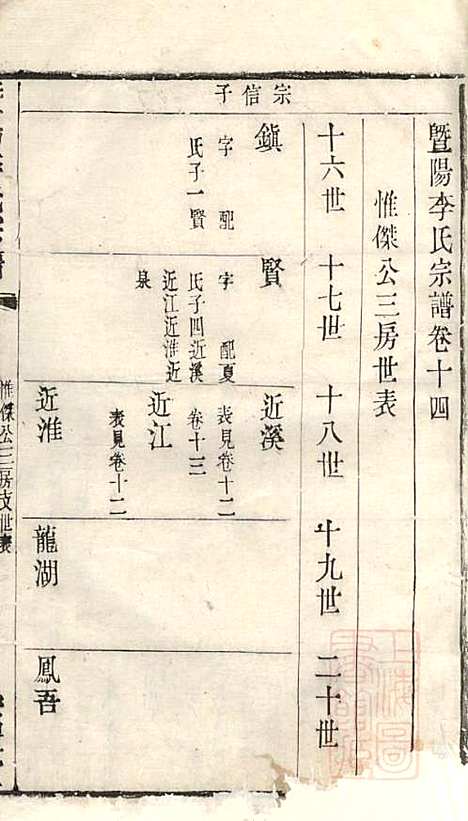 暨陽李氏宗譜卷十四
惟傑公三房世表
十六世 十七世 十八世 十九世 二十世
宗信子
鎮 賢 近溪
字 配 字 配夏 表見卷十二
氏子一賢 氏子四近溪 卷十三
近江近淮近 近江
泉 表見卷十二
近淮 龍湖 鳳吾
惟傑公三房支世表